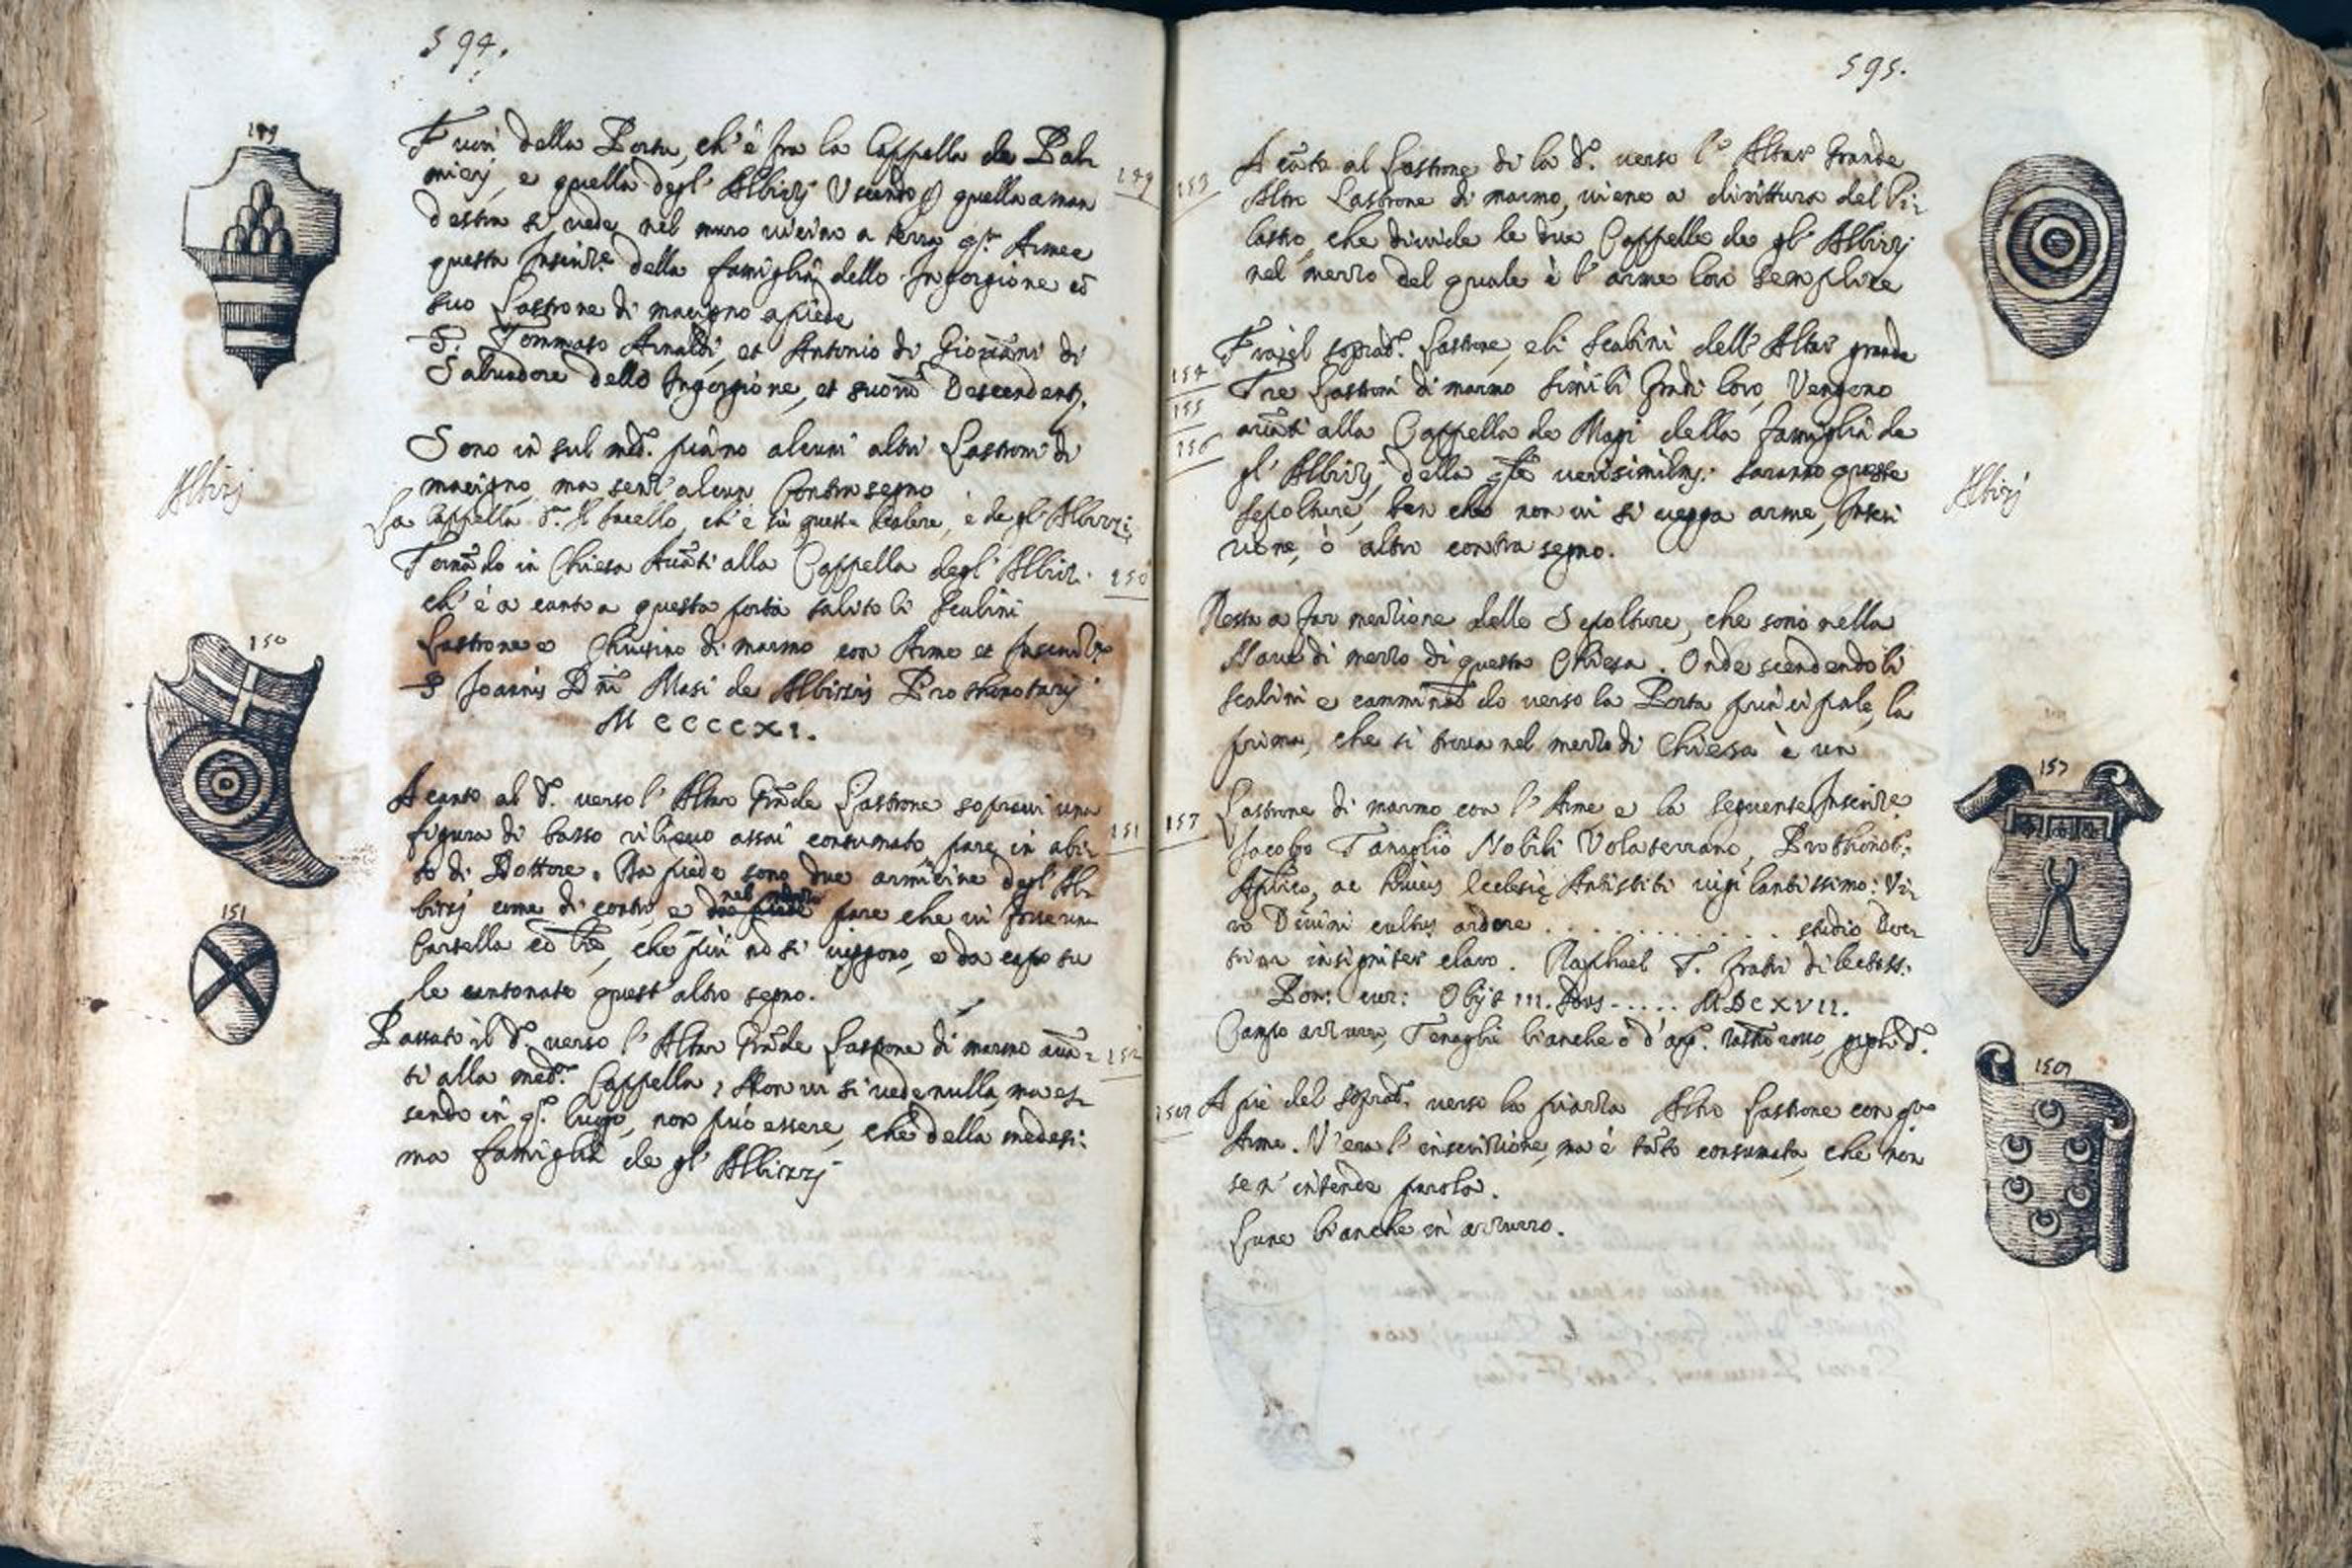 594.
149
Fuori della Porta, ch'è fra la Cappella de Pal
mieri, e quella degl' Albizzi Uscendo quella a man
destra si vede nel muro vicino a terra q.ta Arme e
questa Inscrize. della famiglia dello Ingorgione cō
suo Lastrone di macigno a piede
S. Tommaso Arnaldi, et Antonio di Giovanni di
Salvadore dello Ingorgione, et suorū Descendent.
149
Sono in sul med.o piano alcuni altri Lastroni di
macigno, ma senz' alcun Contrasegno
La Cappella d.a Il Sacello, ch'è sù queste scalere, è de gl' Albizzi
Albizj
Tornādo in Chiesa Avāti alla Cappella degl' Albiz.
ch' è a canto a questa porta salito li scalini
150
Lastrone e Chiusino di marmo con Arme et Inscrize.
S Joannis Dñi Masi de Albizzis Prothonotarij
M CCCCXI.
150
A canto al d.o verso l' Altar Grāde Lastrone sopravi una
figura di basso rilievo assai consumato, pare in abi-
to di Dottore. Da piede sono due armicine degl' Al-
bizzj come di contro, e da piede nel mezzo pare che vi fosse una
Cartella cō lre, che più nō si veggono, e da capo su
le cantonate quest' altro segno.
151
151
Passato il d.o verso l' Altar Grāde Lastrone di marmo avā-
ti alla med.a Cappella, Non vi si vede nulla, ma es-
sendo in q.o luogo, non può essere, che della medesi-
ma famiglia de gl' Albizzj
152
595.
153
A cāto al Lastrone di là d.o verso l' Altar Grande
Altro Lastrone di marmo, viene a dirittura del Pi-
lastro, che divide le due Cappelle de gl' Albizzj
nel mezzo del quale è l' arme loro semplice
154
155
156
Fra il soprad.o Lastrone, e li Scalini dell' Altar grande
Tre Lastroni di marmo simili Gradi loro, Vengono
avāti alla Cappella de Magi della famiglia de
gl' Albizzj, della q̄le verisimilm. saranno queste
sepolture, ben che non vi si vegga arme, Inscri
zione, ò altro contrasegno.
Albizj
Resta a far menzione delle Sepolture, che sono nella
Nave di mezzo di questa Chiesa. Onde scendendo li
scalini e camminādo verso la Porta principale, la
prima, che si trova nel mezzo di Chiesa è un
157
Lastrone di marmo con l' Arme, e la seguente Inscrize.
Jacobo Tanaglio Nobili Volaterrano, Prothonot:
Aplico, ac huius Ecclesię Antistiti vigilantissimo: Vi-
ro Divini cultus ardore . . . . . . . . . . . . studio
insigniter claro. Raphael T. fratri dilectiss.
Pon: cur: Obijt III. . . . . . MDCXVII.
Campo azzurro, Tanaglie bianche ò d'arg. rastro rosso, gigli d.
157
158
A piè del soprad.o verso la piazza Altro Lastrone con q.a
Arme. V' era l' inscrizione, ma è tāto consumata, che non
se n' intende parola.
Lune bianche in azzurro.
158